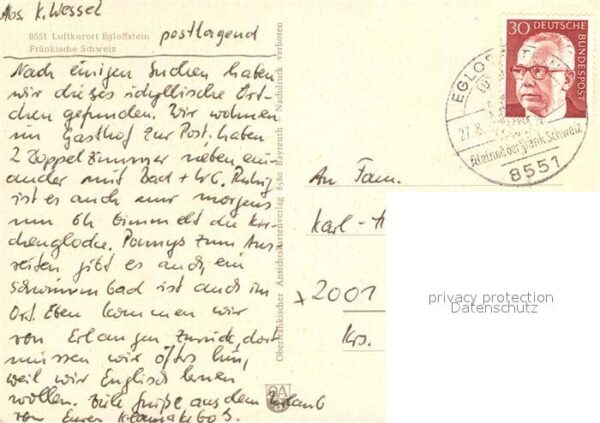 Abs. K. Wessel
postlagernd
8551 Luftkurort Egloffstein
Fränkische Schweiz
Nach einigen Suchen haben
wir dieses idyllische Ört-
chen gefunden. Wir wohnen
im Gasthof zur Post, haben
2 Doppelzimmer neben ein-
ander mit Bad + WC. Ruhig
ist es auch, nur morgens
um 6h bimmelt die Kir-
chenglocke. Ponnys zum Aus-
reiten gibt es auch, ein
Schwimmbad ist auch im
Ort. Eben kommen wir
von Erlangen zurück, dort
müssen wir öfters hin,
weil wir Englisch lernen
wollen. Viele Grüße aus dem Urlaub
von Euren
Oberfränkischer Ansichtskartenverlag 8580 Bayreuth - Nachdruck verboten
30 DEUTSCHE BUNDESPOST
27.8.
Kleinod der Fränk. Schweiz
8551
An Fam.
Karl-
2001
Krs.
privacy protection
Datenschutz